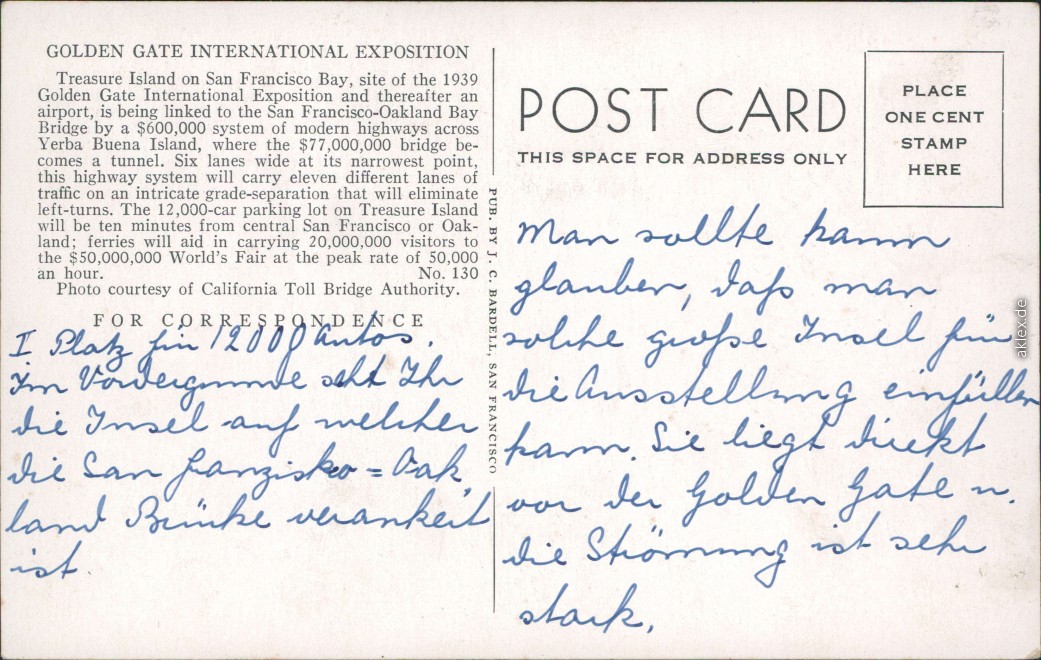 GOLDEN GATE INTERNATIONAL EXPOSITION
Treasure Island on San Francisco Bay, site of the 1939
Golden Gate International Exposition and thereafter an
airport, is being linked to the San Francisco-Oakland Bay
Bridge by a $600,000 system of modern highways across
Yerba Buena Island, where the $77,000,000 bridge be-
comes a tunnel. Six lanes wide at its narrowest point,
this highway system will carry eleven different lanes of
traffic on an intricate grade-separation that will eliminate
left-turns. The 12,000-car parking lot on Treasure Island
will be ten minutes from central San Francisco or Oak-
land; ferries will aid in carrying 20,000,000 visitors to
the $50,000,000 World's Fair at the peak rate of 50,000
an hour. No. 130
Photo courtesy of California Toll Bridge Authority.
FOR CORRESPONDENCE
I Platz für 12000 Autos.
Im Vordergrunde seht Ihr
die Insel auf welcher
die San Franzisko = Oak
land Brücke verankert
ist.
PUB. BY J. C. BARDELL, SAN FRANCISCO
POST CARD
THIS SPACE FOR ADDRESS ONLY
PLACE
ONE CENT
STAMP
HERE
Man sollte kaum
glauben, daß man
solche große Insel für
die Ausstellung einfüllen
kann. Sie liegt direkt
vor der Golden Gate u.
die Strömung ist sehr
stark.
aklex.de